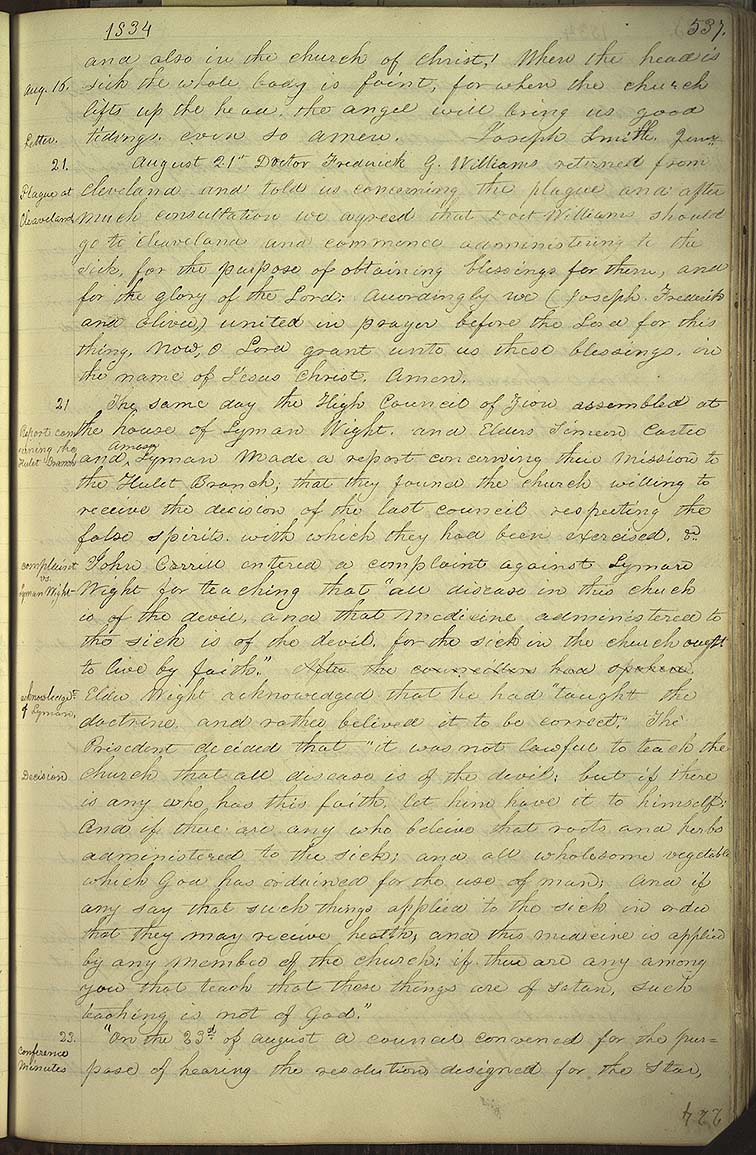 1834 537.
and also in the church of Christ! When the head is
Aug. 16. sick the whole body is faint, for when the church
lifts up the head. the angel will bring us good
Letter. tidings. even so amen. Joseph Smith. Junr
21. August 21st Doctor Frederick G. Williams returned from
Plague at Cleveland and told us concerning the plague and after
Cleaveland much consultation we agreed that Doct Williams should
go to Cleaveland and commence administering to the
sick, for the purpose of obtaining blessings for them, and
for the glory of the Lord: Accordingly we (Joseph, Frederick
and Oliver) united in prayer before the Lord for this
thing. Now, O Lord grant unto us these blessings. in
the name of Jesus Christ. Amen.
21 The same day the High Council of Zion assembled at
Report con the house of Lyman Wight. and Elders Simeon Carter
cerning the Hulet Branch and Amasa Lyman Made a report concerning their mission to
the Hulet Branch; that they found the church willing to
receive the decision of the last council respecting the
false spirits. with which they had been exercised. &c
complaint John Corrill entered a complaint against Lyman
vs. Lyman Wight Wight for teaching that "all disease in this chuch
is of the devil, and that medicine administered to
the sick is of the devil. for the sick in the church ought
to live by faith." After the councillors had spoken,
acknowledgt of Lyman, Elder Wight acknowedged that he had "taught the
doctrine and rather belived it to be correct" The
President decided that "it was not lawful to teach the
Decision church that all disease is of the devil; but if there
is any who has this faith. let him have it to himself:
And if there are any who beleive that roots and herbs
administered to the sick; and all wholesome vegetable
which God has ordained for the use of man; And if
any say that such things applied to the sick in order
that they may receive health, and this medicine is applied
by any member of the church: if there are any among
you that teach that these things are of Satan, such
teaching is not of God."
23. "On the 23d of august a council convened for the pur=
Conference Minutes pose of hearing the revolution designed for the Star,